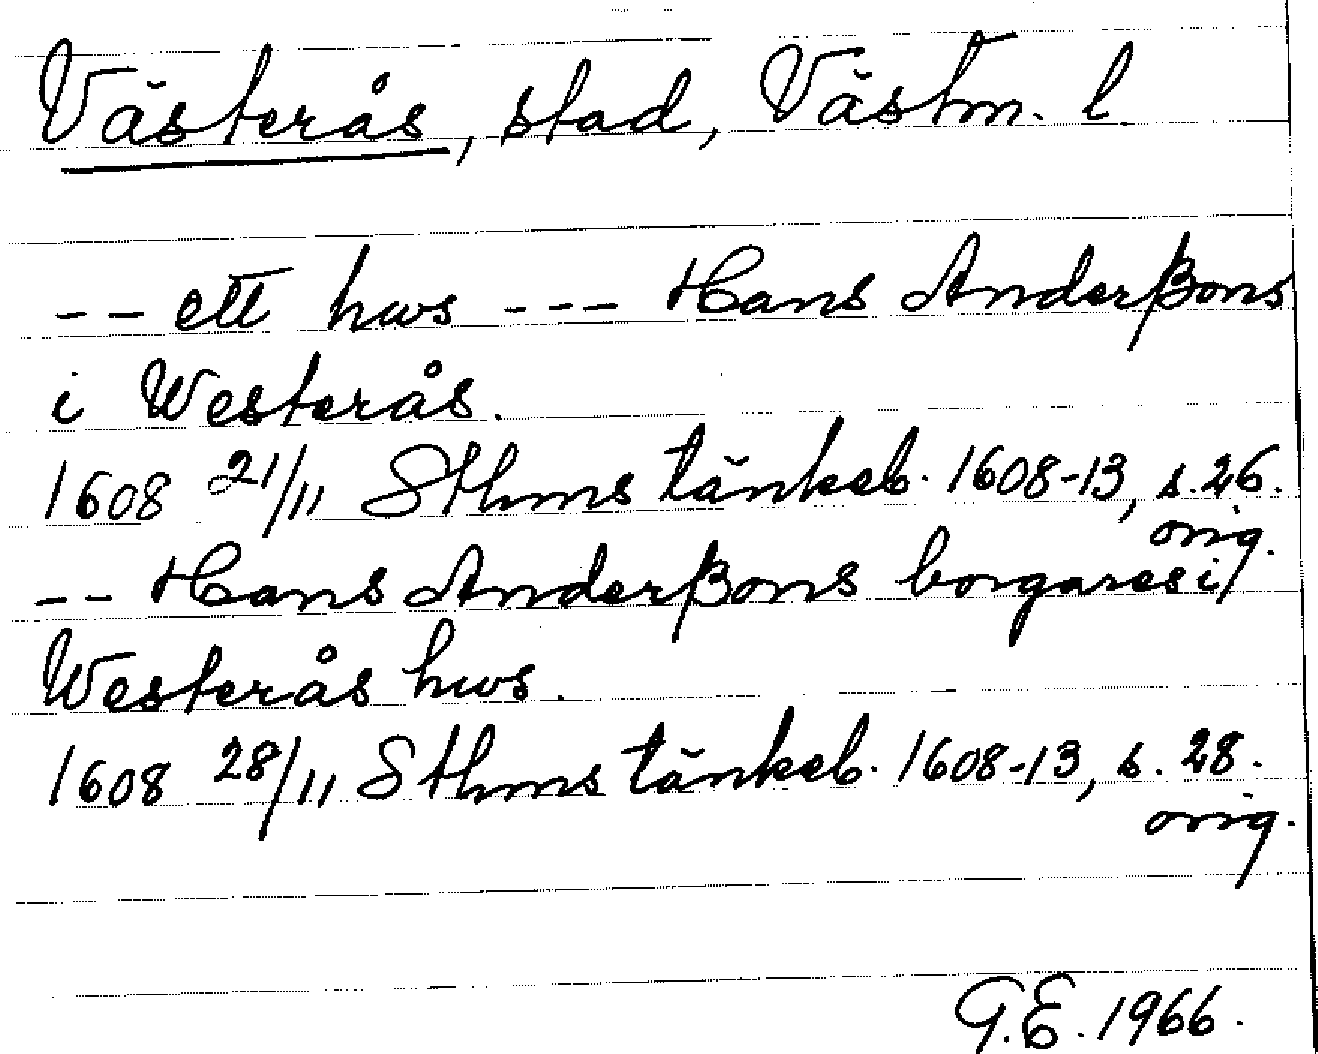 Västerås, stad, Västm. l.
-- ett hws --- Hans Anderßons
i Westerås.
1608 21/11 Sthms tänkeb. 1608-13, s. 26.
orig.
-- Hans Anderßons borgares i
Westerås hws.
1608 28/11 Sthms tänkeb. 1608-13, s. 28.
orig.
G.E. 1966.